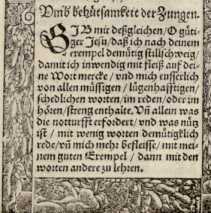 Umb behütsamkeit der Zungen.
GIB mir deßgleichen / O güti-
ger Jesu / daß ich nach deinem
exempel demütig stillschweig /
damit ich inwendig mit fleiß auf dei-
ne Wort mercke / vnd mich eusserlich
von allen müssigen / lügenhafftigen /
schedlichen worten / im reden / oder im
hören / streng enthalte. Vñ allein was
die notturfft erfordert / vnd was nütz
ist / mit wenig worten demütigklich
rede / vñ mich mehr befleisse / mit mei-
nem guten Exempel / dann mit den
worten andere zu lehren.